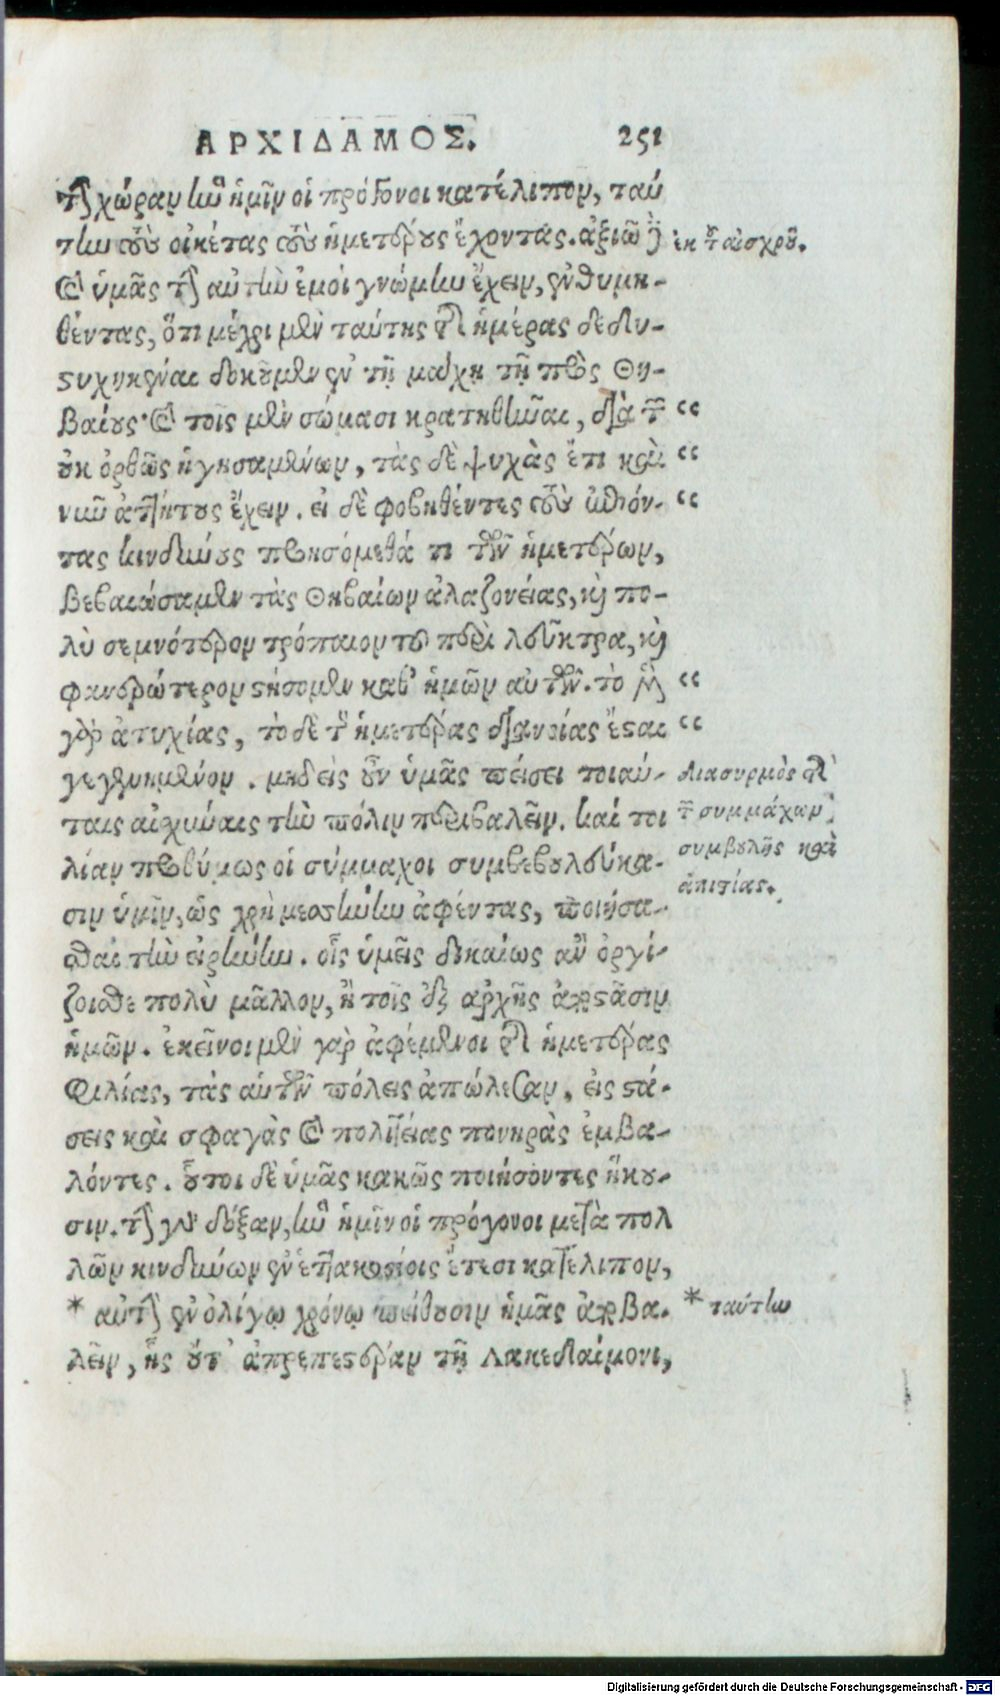 ΑΡΧΙΔΑΜΟΣ. 251
τὴν χώραν ἣν ἡμῖν οἱ πρόγονοι κατέλιπον, ταύ
την τοὺς οἰκέτας τοὺς ἡμετέρους ἔχοντας. ἀξιῶ δὲ
καὶ ὑμᾶς τὴν αὐτὴν ἐμοὶ γνώμην ἔχειν, ἐνθυμη-
θέντας, ὅτι μέχρι μὲν ταύτης τῆς ἡμέρας δεδυ-
στυχηκέναι δοκοῦμεν ἐν τῇ μάχῃ τῇ πρὸς Θη-
βαίους· καὶ τοῖς μὲν σώμασι κρατηθῆναι, διὰ τὸν
οὐκ ὀρθῶς ἡγησαμένων, τὰς δὲ ψυχὰς ἔτι καὶ
νῦν ἀηττήτους ἔχειν. εἰ δὲ φοβηθέντες τοὺς ἐπιόν-
τας κινδύνους προησόμεθά τι τῶν ἡμετέρων,
βεβαιώσομεν τὰς Θηβαίων ἀλαζονείας, καὶ πο-
λὺ σεμνότερον τρόπαιον τοῦ περὶ λεῦκτρα, καὶ
φανερώτερον στήσομεν καθ' ἡμῶν αὐτῶν. τὸ μὲν
γὰρ ἀτυχίας, τὸ δὲ τῆς ἡμετέρας διανοίας ἔσται
γεγενημένον. μηδεὶς οὖν ὑμᾶς πείσει τοιαύ-
ταις αἰσχύναις τὴν πόλιν περιβαλεῖν. καί τοι
λίαν προθύμως οἱ σύμμαχοι συμβεβουλεύκα-
σιν ὑμῖν, ὡς χρὴ μεσσήνην ἀφέντας, ποιήσα-
σθαι τὴν εἰρήνην. οἷς ὑμεῖς δικαίως ἂν ὀργί-
ζοισθε πολὺ μᾶλλον, ἢ τοῖς ἐξ ἀρχῆς ἀποστᾶσιν
ἡμῶν. ἐκεῖνοι μὲν γὰρ ἀφέμενοι τῆς ἡμετέρας
φιλίας, τὰς αὑτῶν πόλεις ἀπώλεσαν, εἰς στά-
σεις καὶ σφαγὰς καὶ πολιτείας πονηρὰς ἐμβα-
λόντες. οὗτοι δὲ ὑμᾶς κακῶς ποιήσοντες ἥκου-
σιν. τὴν γὰρ δόξαν, ἣν ἡμῖν οἱ πρόγονοι μετὰ πολ
λῶν κινδύνων ἐν ἑπτακοσίοις ἔτεσι κατέλιπον,
* αὐτὴν ἐν ὀλίγῳ χρόνῳ πείθουσιν ἡμᾶς ἀποβα-
λεῖν, ἧς οὔτ' ἀπρεπεστέραν τῇ Λακεδαίμονι,
ἐκ τοῦ αἰσχροῦ.
διασυρμὸς τῆς
τῶν συμμάχων
συμβουλῆς καὶ
ἀπιστίας.
* ταύτην
Digitalisierung gefördert durch die Deutsche Forschungsgemeinschaft - DFG